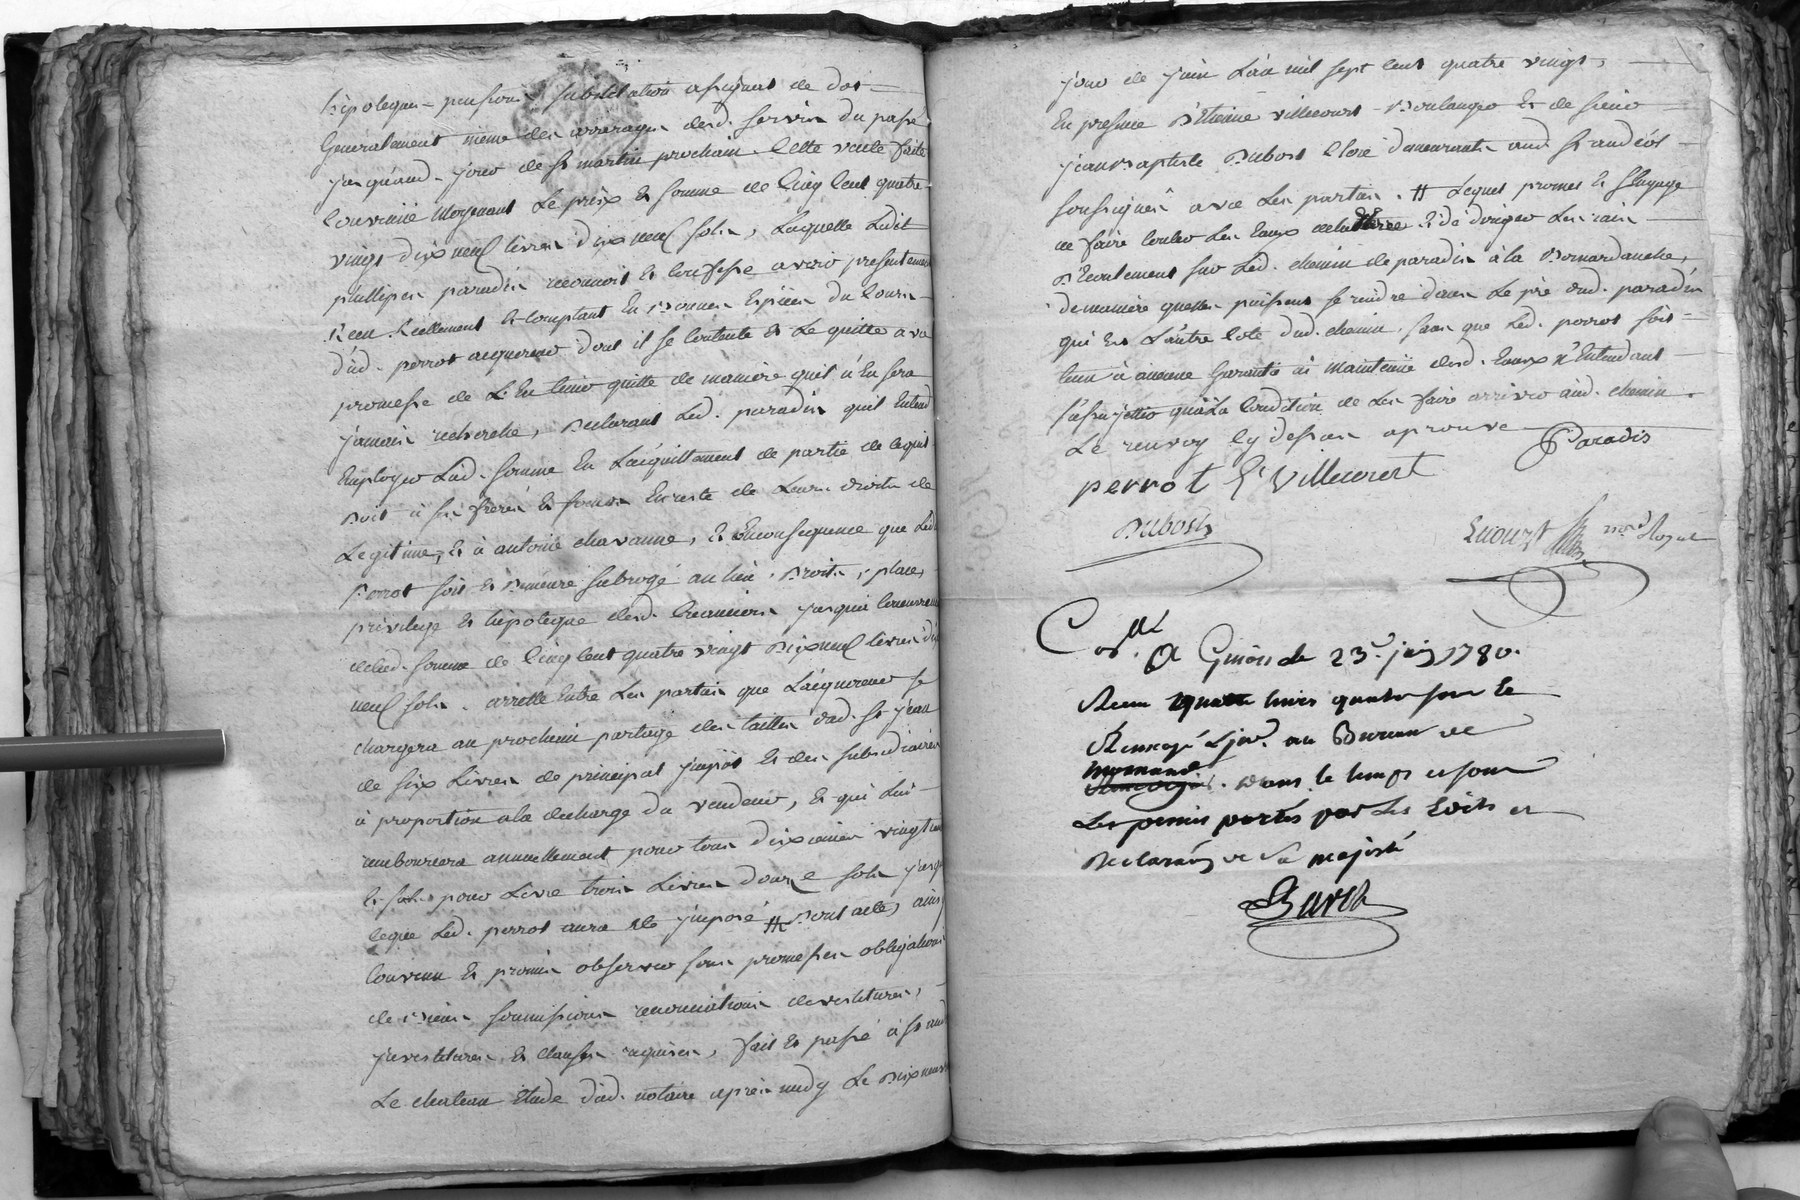 hipoteques pensions substitution assignat de dot
Generalement même des arrerages desd. servis du passé
jusquaud. jour de st martin prochain. Cette vente faite
Convenüe Moyenant Le prix et somme de Cinq Cent quatre
vingt dix neuf livres dix neuf sols, Laquelle Ledit
phillipes paradis reconnoit et Confesse avoir presentement
Reçu Reellement et comptant En Bonnes Espèces du Cours
dud. perrot acquereur dont il se Contente et Le quitte avec
promesse de L'En tenir quitte de maniere quil n'En sera
jamais recherché, Declarant Led. paradis quil Entend
Employer Lad. somme En L'acquittement de partie de ce quil
Doit à ses freres et soeurs En reste de Leurs droits de
Legitime, et à antoine chavanne, et Enconsequence que Led.
Perrot soit et Demeure subrogé au lieu, Droits, place,
privilege et hipoteque desd. Creanciers jusqu'à Concurrence
de lad. somme de Cinq Cent quatre vingt Dixneuf livres dix
neuf sols. arretté Entre Les parties que L'acquereur se
chargera au prochain partage des tailles dud. St jean
de six Livres de principal jmpôt et des subsidiaires
à proportion a la decharge du vendeur, et qui Lui
remboursera annuellement pour tous dixiemes vingtiemes
et sols pour Livre trois Livres douze sols jusqu'à
ceque Led. perrot aura été jmposé # Dont acte, ainsi
Convenu et promis observer sous promesses obligations
de Biens soumissions renonciations devestitures,
jnvestitures et clauses requises, fait et passé à St and
Le chateau Etude dud. notaire après midy Le Dixneuv
jour de juin L'an mil sept Cent quatre vingt,
En presence D'Etienne villecourt Boulanger et de sieur
jean Baptiste Dubost Clerc demeurants aud. St andéol
soussignés avec Les parties. # Lequel promet et s'Engage
de faire Couler Les Eaux de lad. terre et de diriger Les raies
D'Ecoulement sur Led. chemin de paradis à la Bernardanche,
de maniere quelles puissent se rendre dans Le pré dud. paradis
qui est L'autre Coté dud. chemin, sans que Led. perrot soit
tenu à aucune Garantie ni maintenüe desd. Eaux n'Entendant
s'assujettir qu'à La Condition de Les faire arriver aud. chemin.
Le renvoy cy dessus aprouvé Paradis
perrot E Villecourt
Dubost
not. Royal
A Givors le 23. juin 1780.
Recu quatre livres quatre sous et
Renvoyé au Bureau de
dans le temps et sous
Les peines portés par Les Edits et
Declarations de Sa majesté